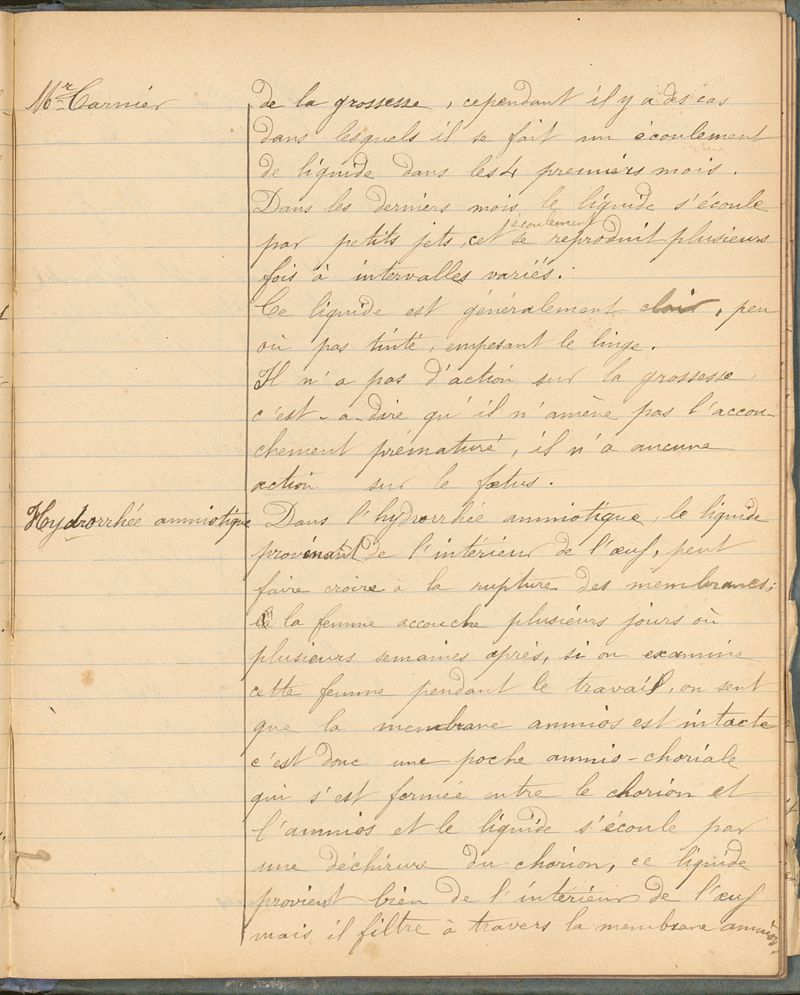 Mr Carnier
de la grossesse, cependant il y a des cas
dans lesquels il se fait un écoulement
de liquide dans les 4 premiers mois.
Dans les derniers mois le liquide s'écoule
écoulement
par petits jets, cet se reproduit plusieurs
fois à intervalles variés.
Ce liquide est généralement clair, peu
ou pas tinté, empesant le linge.
Il n'a pas d'action sur la grossesse,
c'est-a-dire qu'il n'amène pas l'accou-
chement prématuré, il n'a aucune
action sur le fœtus.
Hydrorrhée amniotique
Dans l'hydrorrhée amniotique, le liquide
provenant de l'intérieur de l'œuf, peut
faire croire à la rupture des membranes;
la femme accouche plusieurs jours où
plusieurs semaines après, si on examine
cette femme pendant le travail, on sent
que la membrane amnios est intacte
c'est donc une poche amnio-choriale
qui s'est formée entre le chorion et
l'amnios et le liquide s'écoule par
une déchirure du chorion, ce liquide
provient bien de l'intérieur de l'œuf
mais il filtre à travers la membrane amnios.